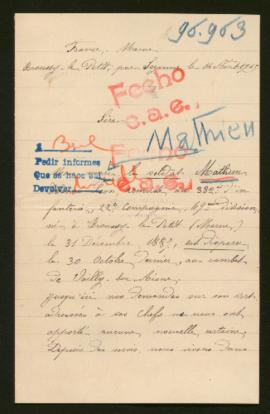 96.963
France, Marne
Broussy-le-Petit, par Sézanne le
Fecho
c.a.e.
Sire
Mathieu
Pedir informes
Que se hace aul
Devolver
Fecho
c.a.e.
le soldat Mathieu
332e d'in
fanterie, 22e Compagnie, 69e division,
né à Broussy-le-Petit (Marne)
le 31 Décembre 1882, est disparu
le 30 Octobre dernier, au combat
de Vailly-sur-Aisne.
Jusqu'ici nos demandes sur son sort
adressées à ses chefs ne nous ont
apporté aucune nouvelle certaine.
Depuis dix mois, nous vivons dans